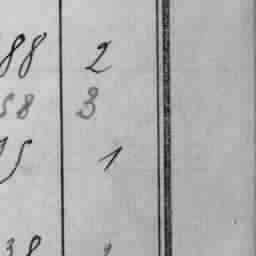 88 2
58 3
75 1
38